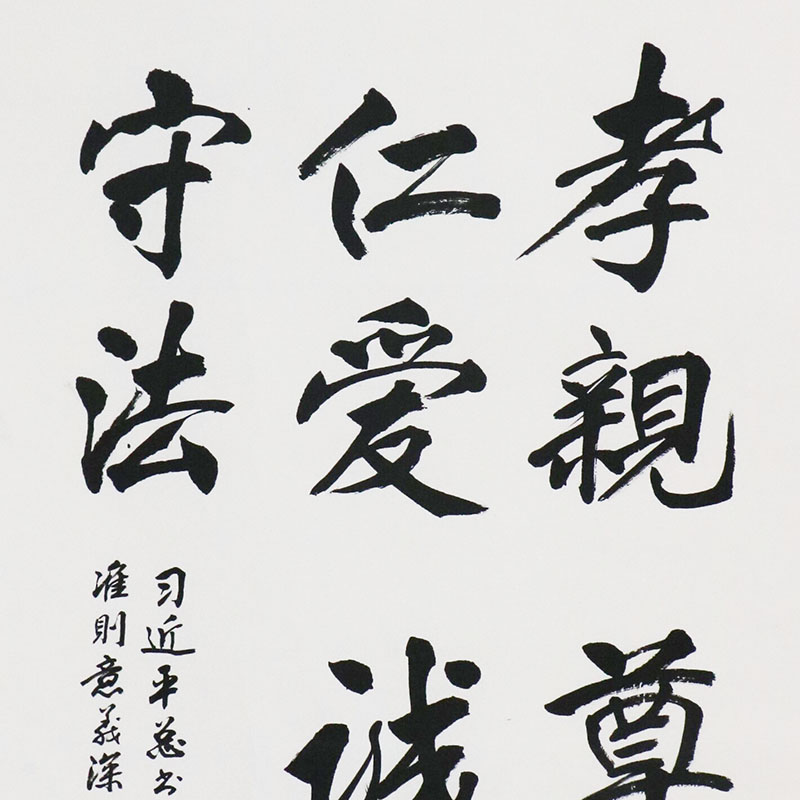 孝親尊
仁爱诚
守法
习近平总书
准則意義深